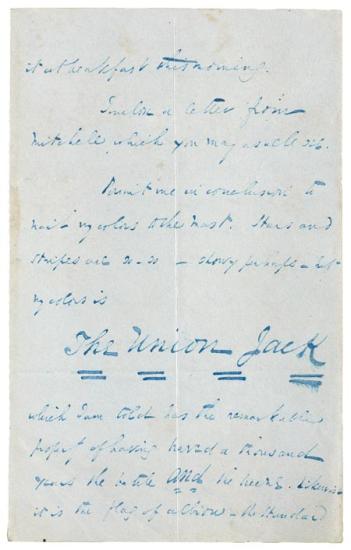 it at breakfast this morning.
I enclose a letter from
Mitchell, which you may as well see.
Permit me in conclusion to
nail my colors to the mast. Stars and
stripes are so-so — showy perhaps — but
my colors is
The Union Jack
which I am told has the remarkable
property of having braved a thousand
years the battle and the breeze. Likewise
it is the flag of Albion — the standard